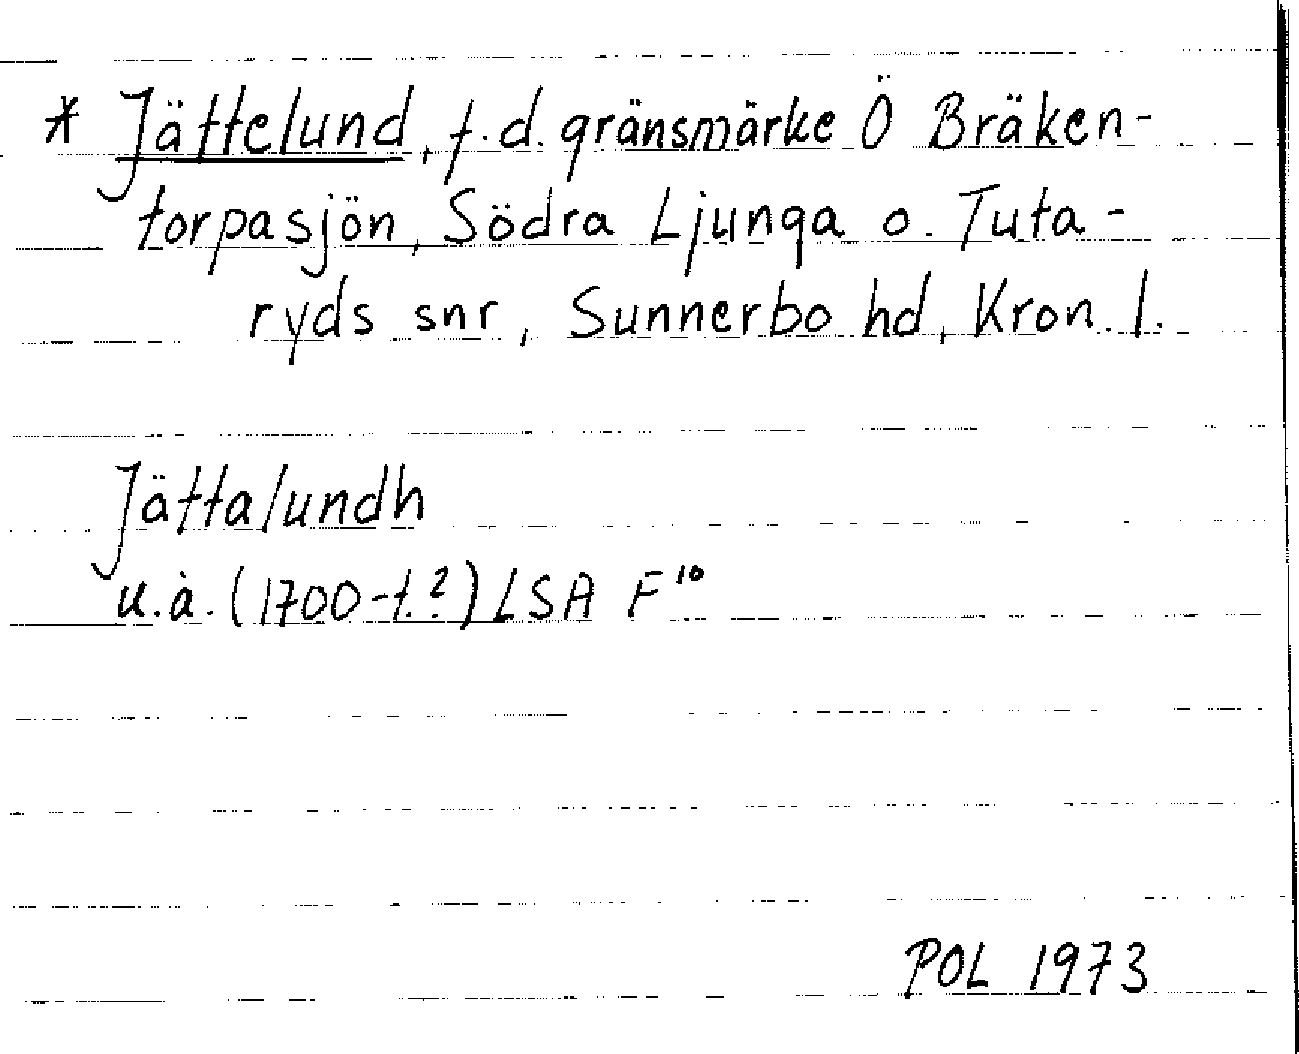 * Jättelund, f.d. gränsmärke Ö Bräken-
torpasjön, Södra Ljunga o. Tuta-
ryds snr, Sunnerbo hd, Kron. l.
Jättalundh
u.å. (1700-t.?) LSA F¹⁰
POL 1973